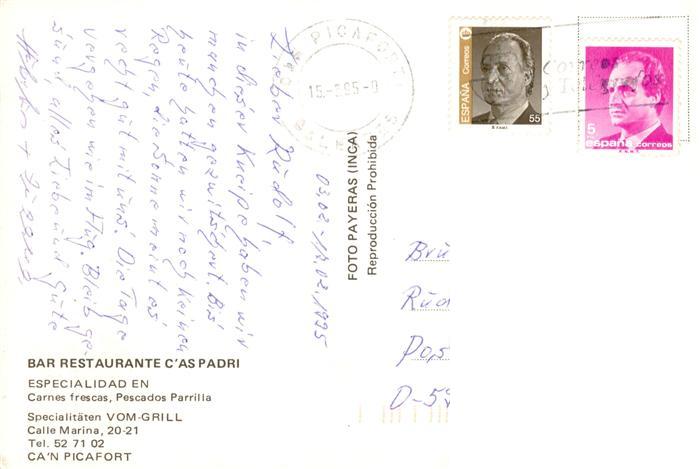 Lieber Rudolf,
in dieser Kneipe haben wir
manchen gezwitschert. Bis
heute hatten wir noch keinen
Regen, die Sonne meint es
recht gut mit uns. Die Tage
vergehen wie im Flug. Bleib ge-
sund, alles Liebe und Gute
03.02.-17.02.1995
FOTO PAYERAS (INCA)
Reproducción Prohibida
PICAFORT
ESPAÑA Correos
55
5
PTA
españa correos
Correos
y Telégrafos
Brü
Rud
D-5
BAR RESTAURANTE C'AS PADRI
ESPECIALIDAD EN
Carnes frescas, Pescados Parrilla
Specialitäten VOM-GRILL
Calle Marina, 20-21
Tel. 52 71 02
CA'N PICAFORT